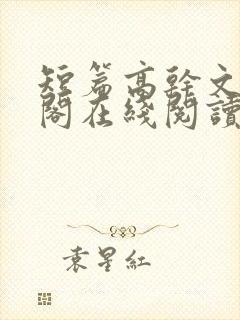 短篇高幹文
閣在綫閱讀
袁星紅